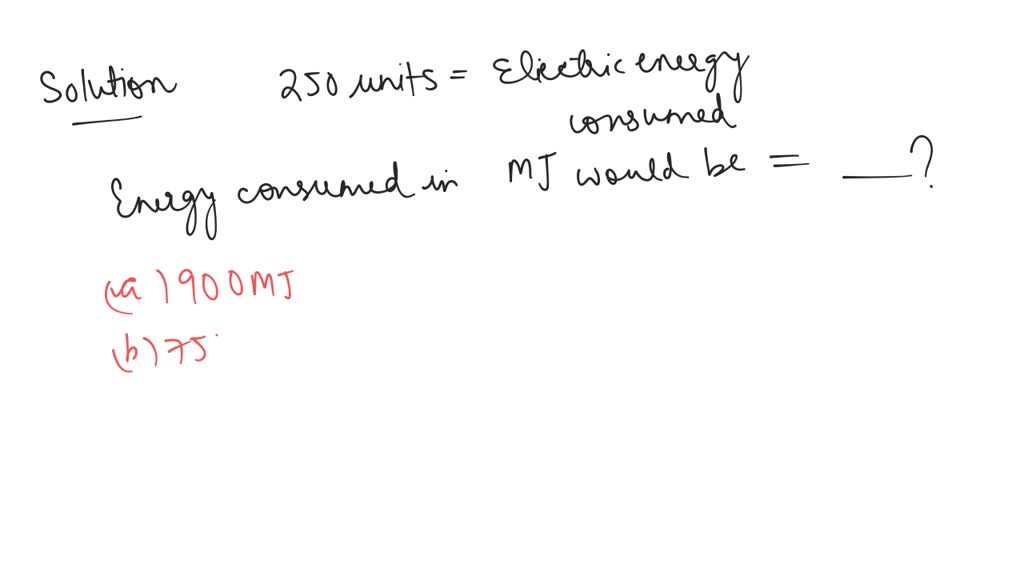 Solution 250 units = Electric energy
consumed
Energy consumed in MJ would be = ___?
(a) 900MJ
(b) 75